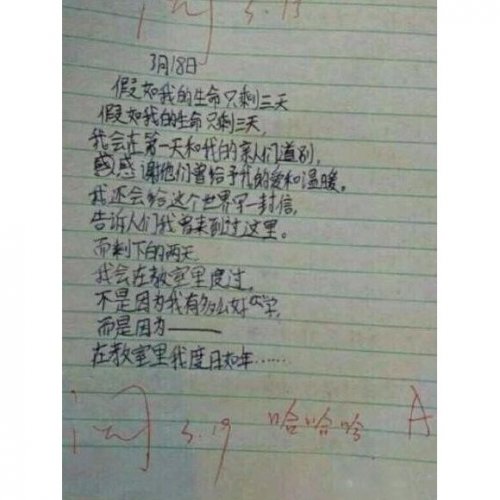 阅 3.13
3月18日
假如我的生命只剩三天
假如我的生命只剩三天,
我会在第一天和我的亲人们道别,
感谢他们曾给予我的爱和温暖。
我还会给这个世界写一封信,
告诉人们我曾来到过这里。
而剩下的两天
我会在教室里度过,
不是因为我有多么好学,
而是因为——
在教室里我度日如年……
阅 3.19 哈哈哈 A